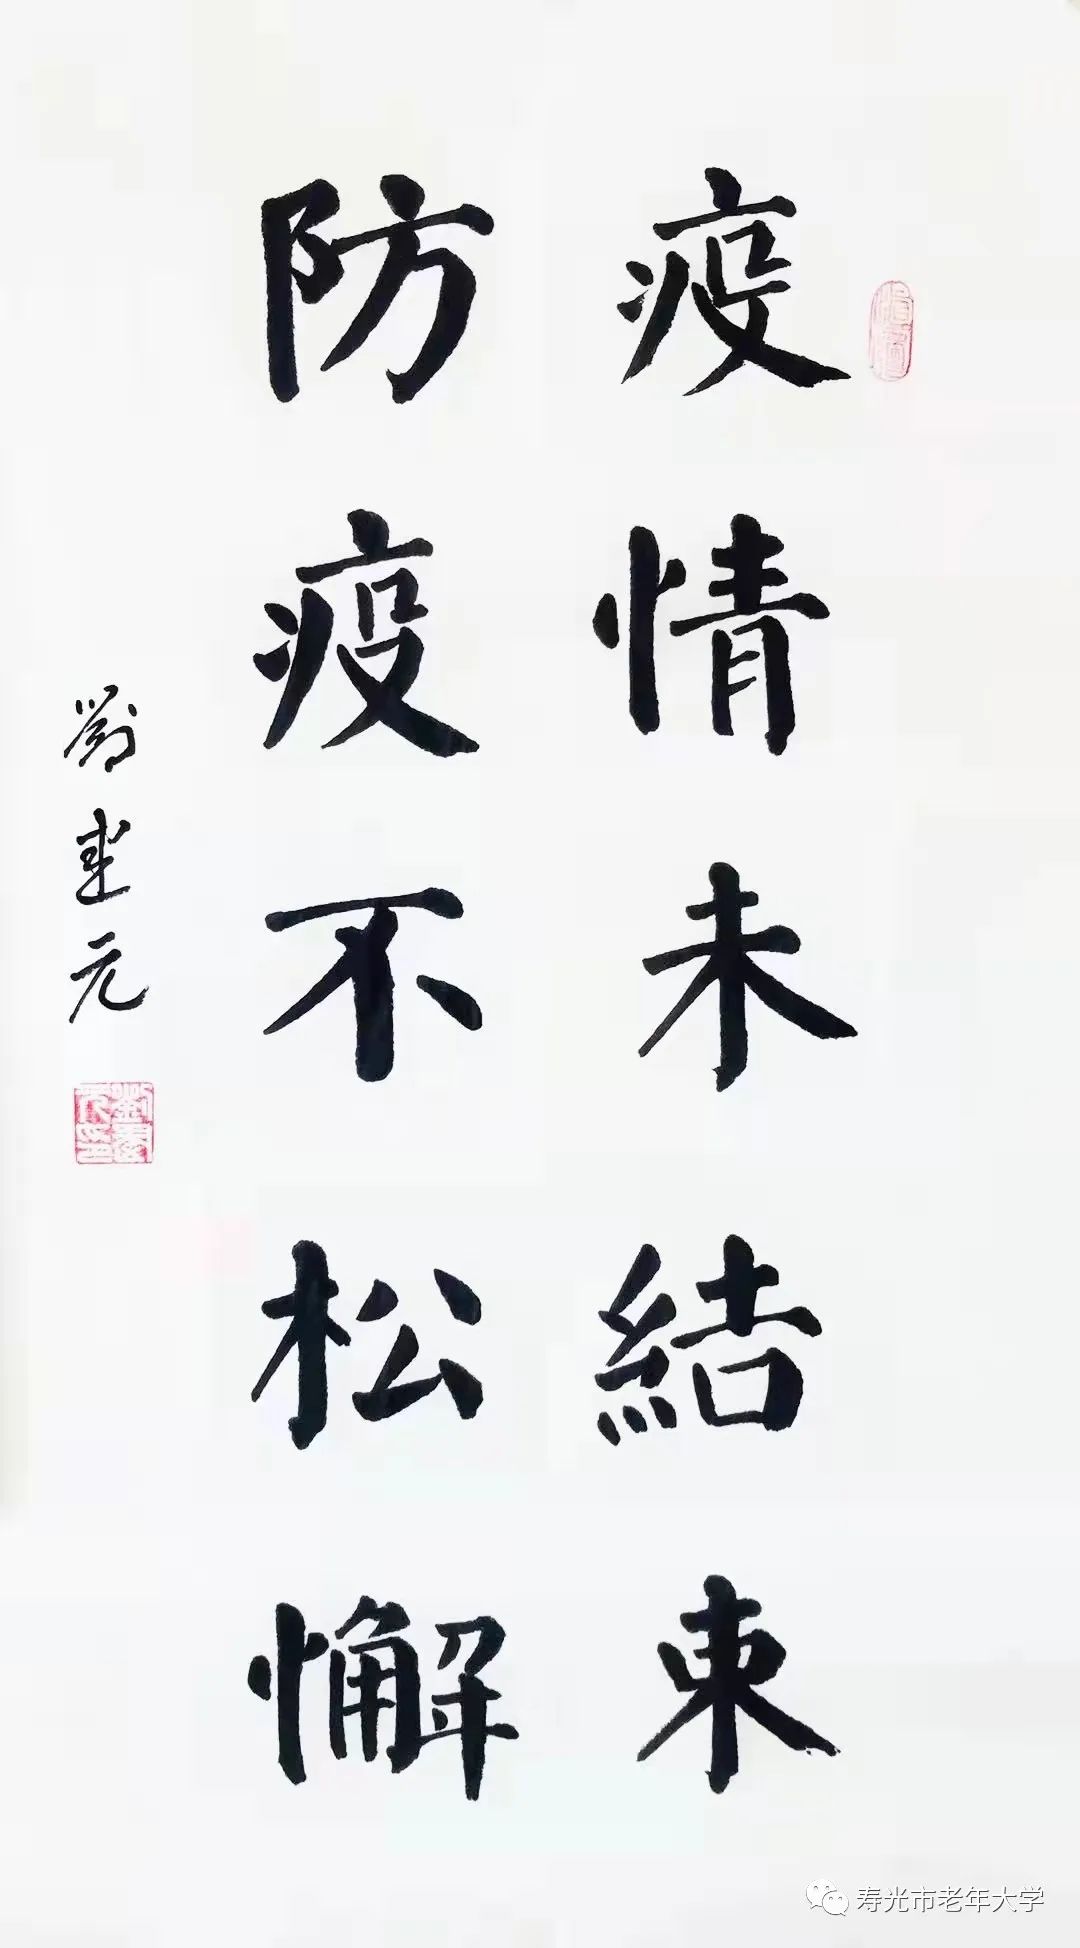 疫情未結束
防疫不松懈
元
寿光市老年大学